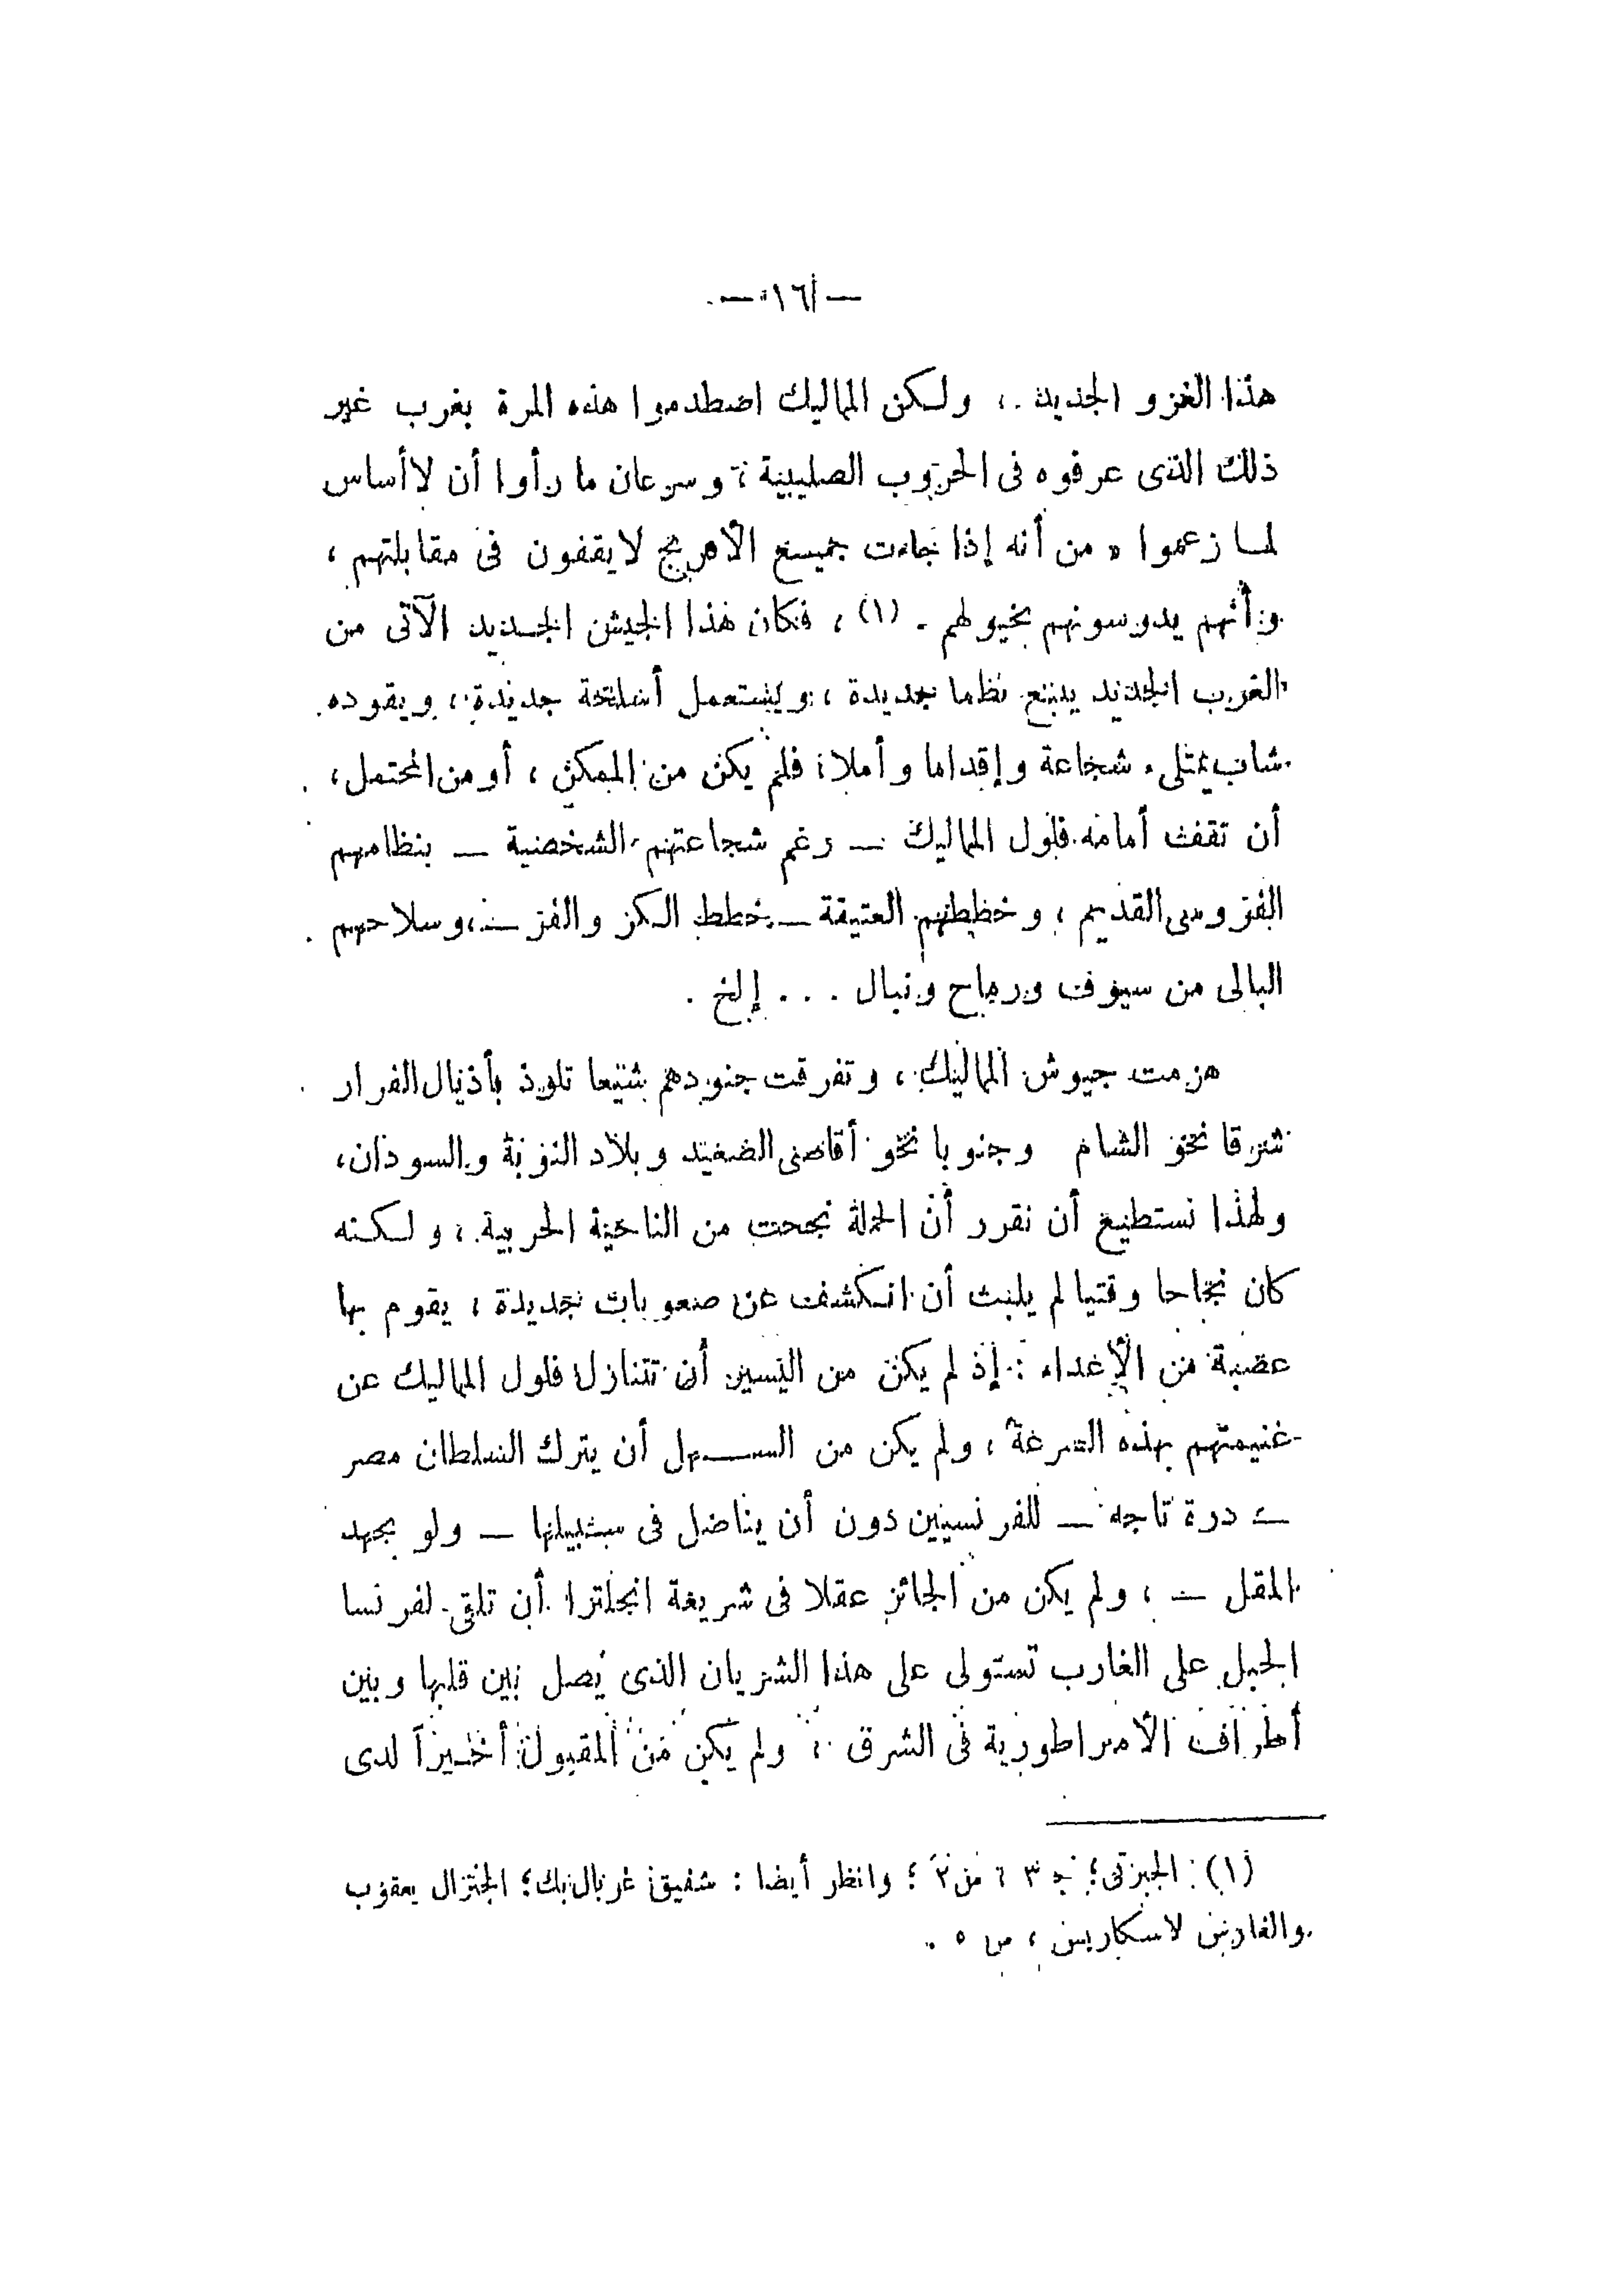 — ١٦ —
هذا الغزو الجديد ، ولكن المماليك اصطدموا هذه المرة بغرب غير
ذلك الذى عرفوه فى الحروب الصليبية ، وسرعان ما رأوا أن لا أساس
لما زعموا « من أنه إذا جاءت جميع الافرنج لا يقفون فى مقابلتهم ،
وأنهم يدوسونهم بخيولهم . (١) ، فكان هذا الجيش الجديد الآتى من
الغرب الجديد يتبع نظما جديدة ، ويستعمل أسلحة جديدة ، ويقوده
شاب يمتلىء شجاعة وإقداما وأملا ؛ فلم يكن من الممكن ، أو من المحتمل ،
أن تقف أمامه فلول المماليك — رغم شجاعتهم الشخصية — بنظامهم
الفروسى القديم ، وخططهم العتيقة — خطط الكر والفر — ، وسلاحهم
البالى من سيوف ورماح ونبال . . . إلخ .
هزمت جيوش المماليك ، وتفرقت جنودهم شيعا تلوذ بأذيال الفرار
شرقا نحو الشام وجنوبا نحو أقاصى الصعيد وبلاد النوبة والسودان ،
ولهذا نستطيع أن نقرر أن الحملة نجحت من الناحية الحربية ، ولكنه
كان نجاحا وقتيا لم يلبث أن انكشف عن صعوبات جديدة ، يقوم بها
عصبة من الأعداء : إذ لم يكن من اليسير أن تتنازل فلول المماليك عن
غنيمتهم بهذه السرعة ، ولم يكن من السهل أن يترك السلطان مصر
— درة تاجه — للفرنسيين دون أن يناضل فى سبيلها — ولو بجهد
المقل — ، ولم يكن من الجائز عقلا فى شريعة انجلترا أن تلقى لفرنسا
الحبل على الغارب تستولى على هذا الشريان الذى يصل بين قلبها وبين
أطراف الامبراطورية فى الشرق ، ولم يكن من المقبول أخيراً لدى
(١) الجبرتى ؛ ج ٣ ، ص ٢ ؛ وانظر أيضا : شفيق غربال بك ؛ الجنرال يعقوب
والفارس لاسكاريس ، ص ٥ .